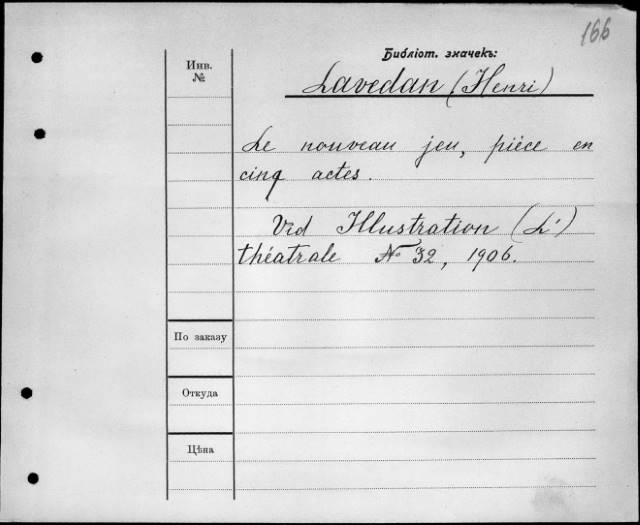 166
Библіот. значекъ:
Инв.
№
Lavedan (Henri)
Le nouveau jeu, pièce en
cinq actes.
Vid Illustration (L')
théatrale № 32, 1906.
По заказу
Откуда
Цѣна